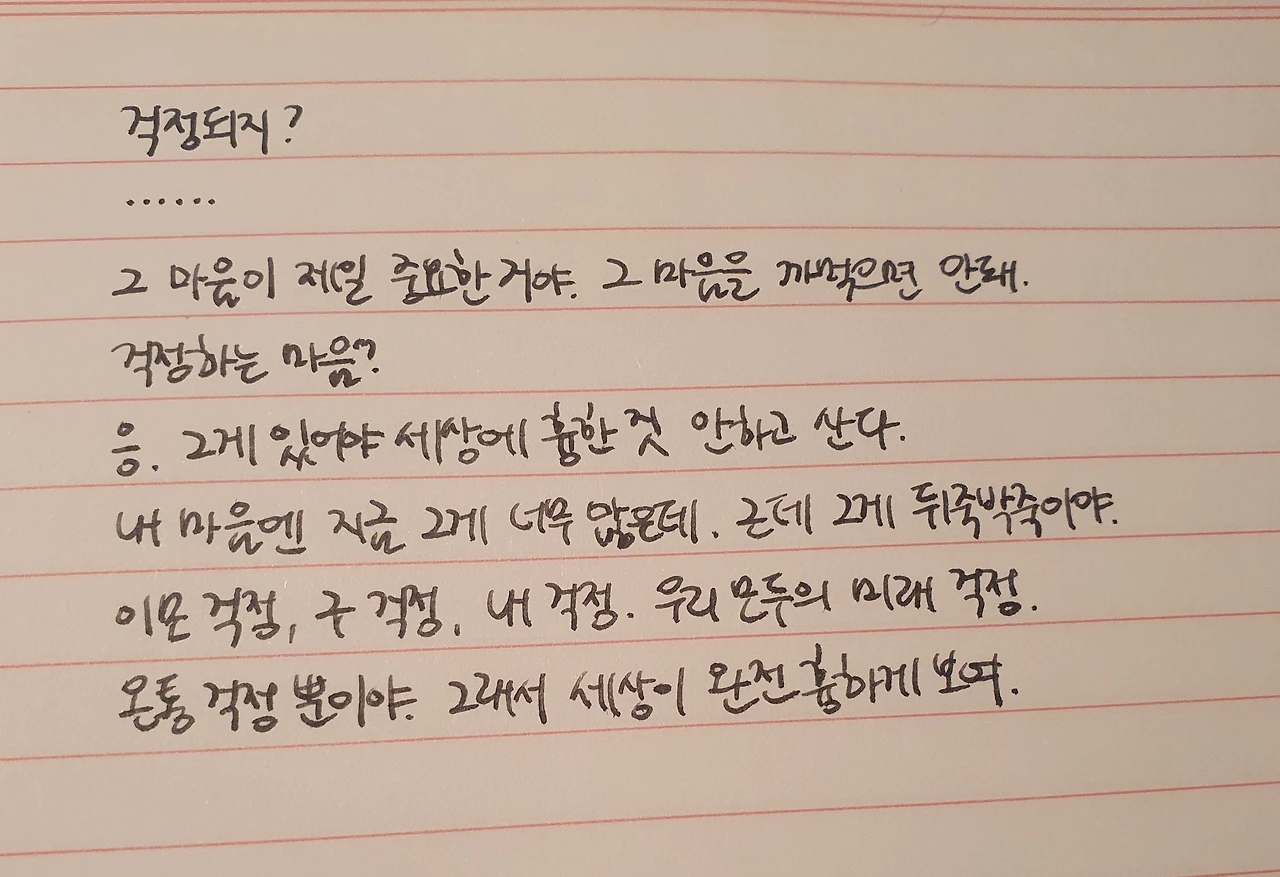 걱정되지?
......
그 마음이 제일 중요한거야. 그 마음을 까먹으면 안돼.
걱정하는 마음?
응. 그게 있어야 세상에 흉한 짓 안하고 산다.
내 마음엔 지금 그게 너무 많은데. 근데 그게 뒤죽박죽이야.
이모 걱정, 구 걱정, 내 걱정. 우리 모두의 미래 걱정.
온통 걱정 뿐이야. 그래서 세상이 완전 흉하게 보여.